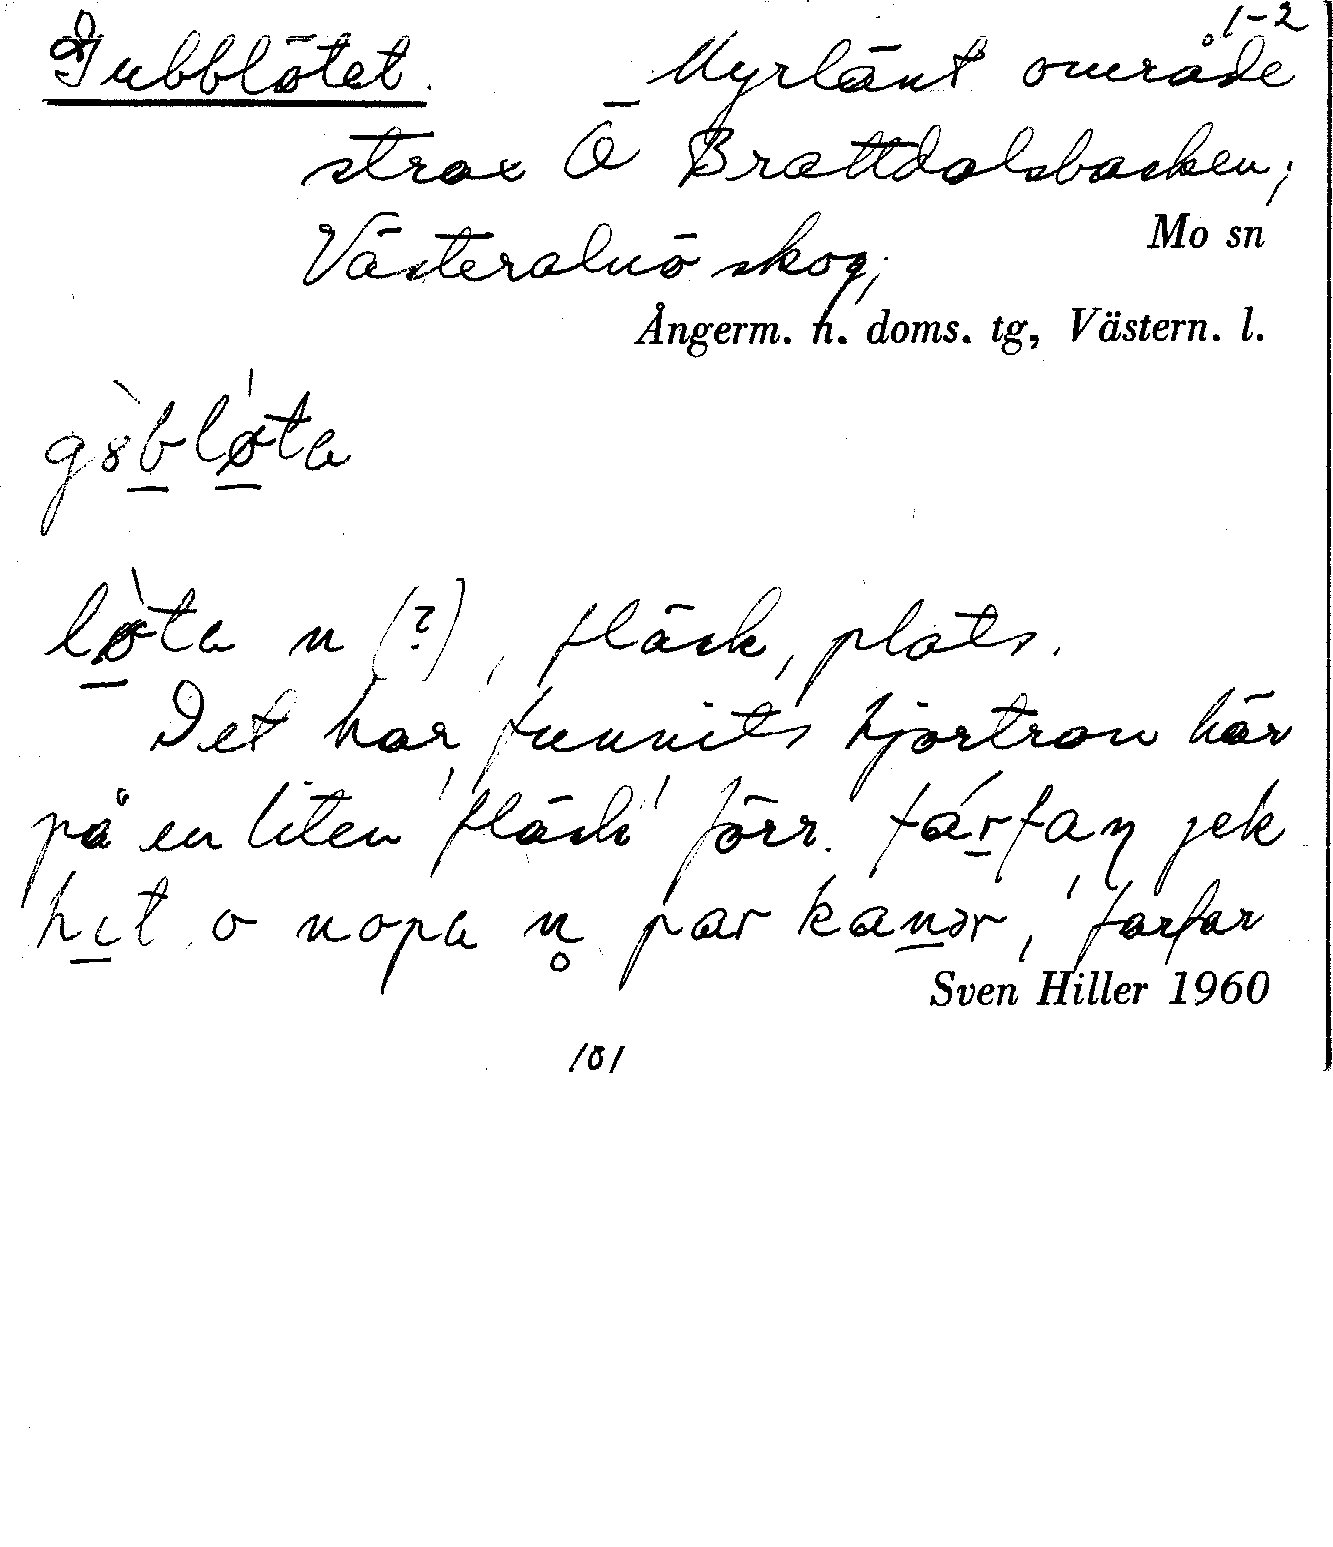 1-2
Gubblötet. Myrlänt område
strax Ö Brattdalsbacken;
Mo sn
Västeralnö skog;
Ångerm. n. doms. tg, Västern. l.
gòbløta
lø̀ta n (?), fläck, plats.
Det har funnits hjortron här
på en liten 'fläck' förr. fárfaṇ jek
hit o nopa n̥ par kanər, 'farfar
Sven Hiller 1960
101